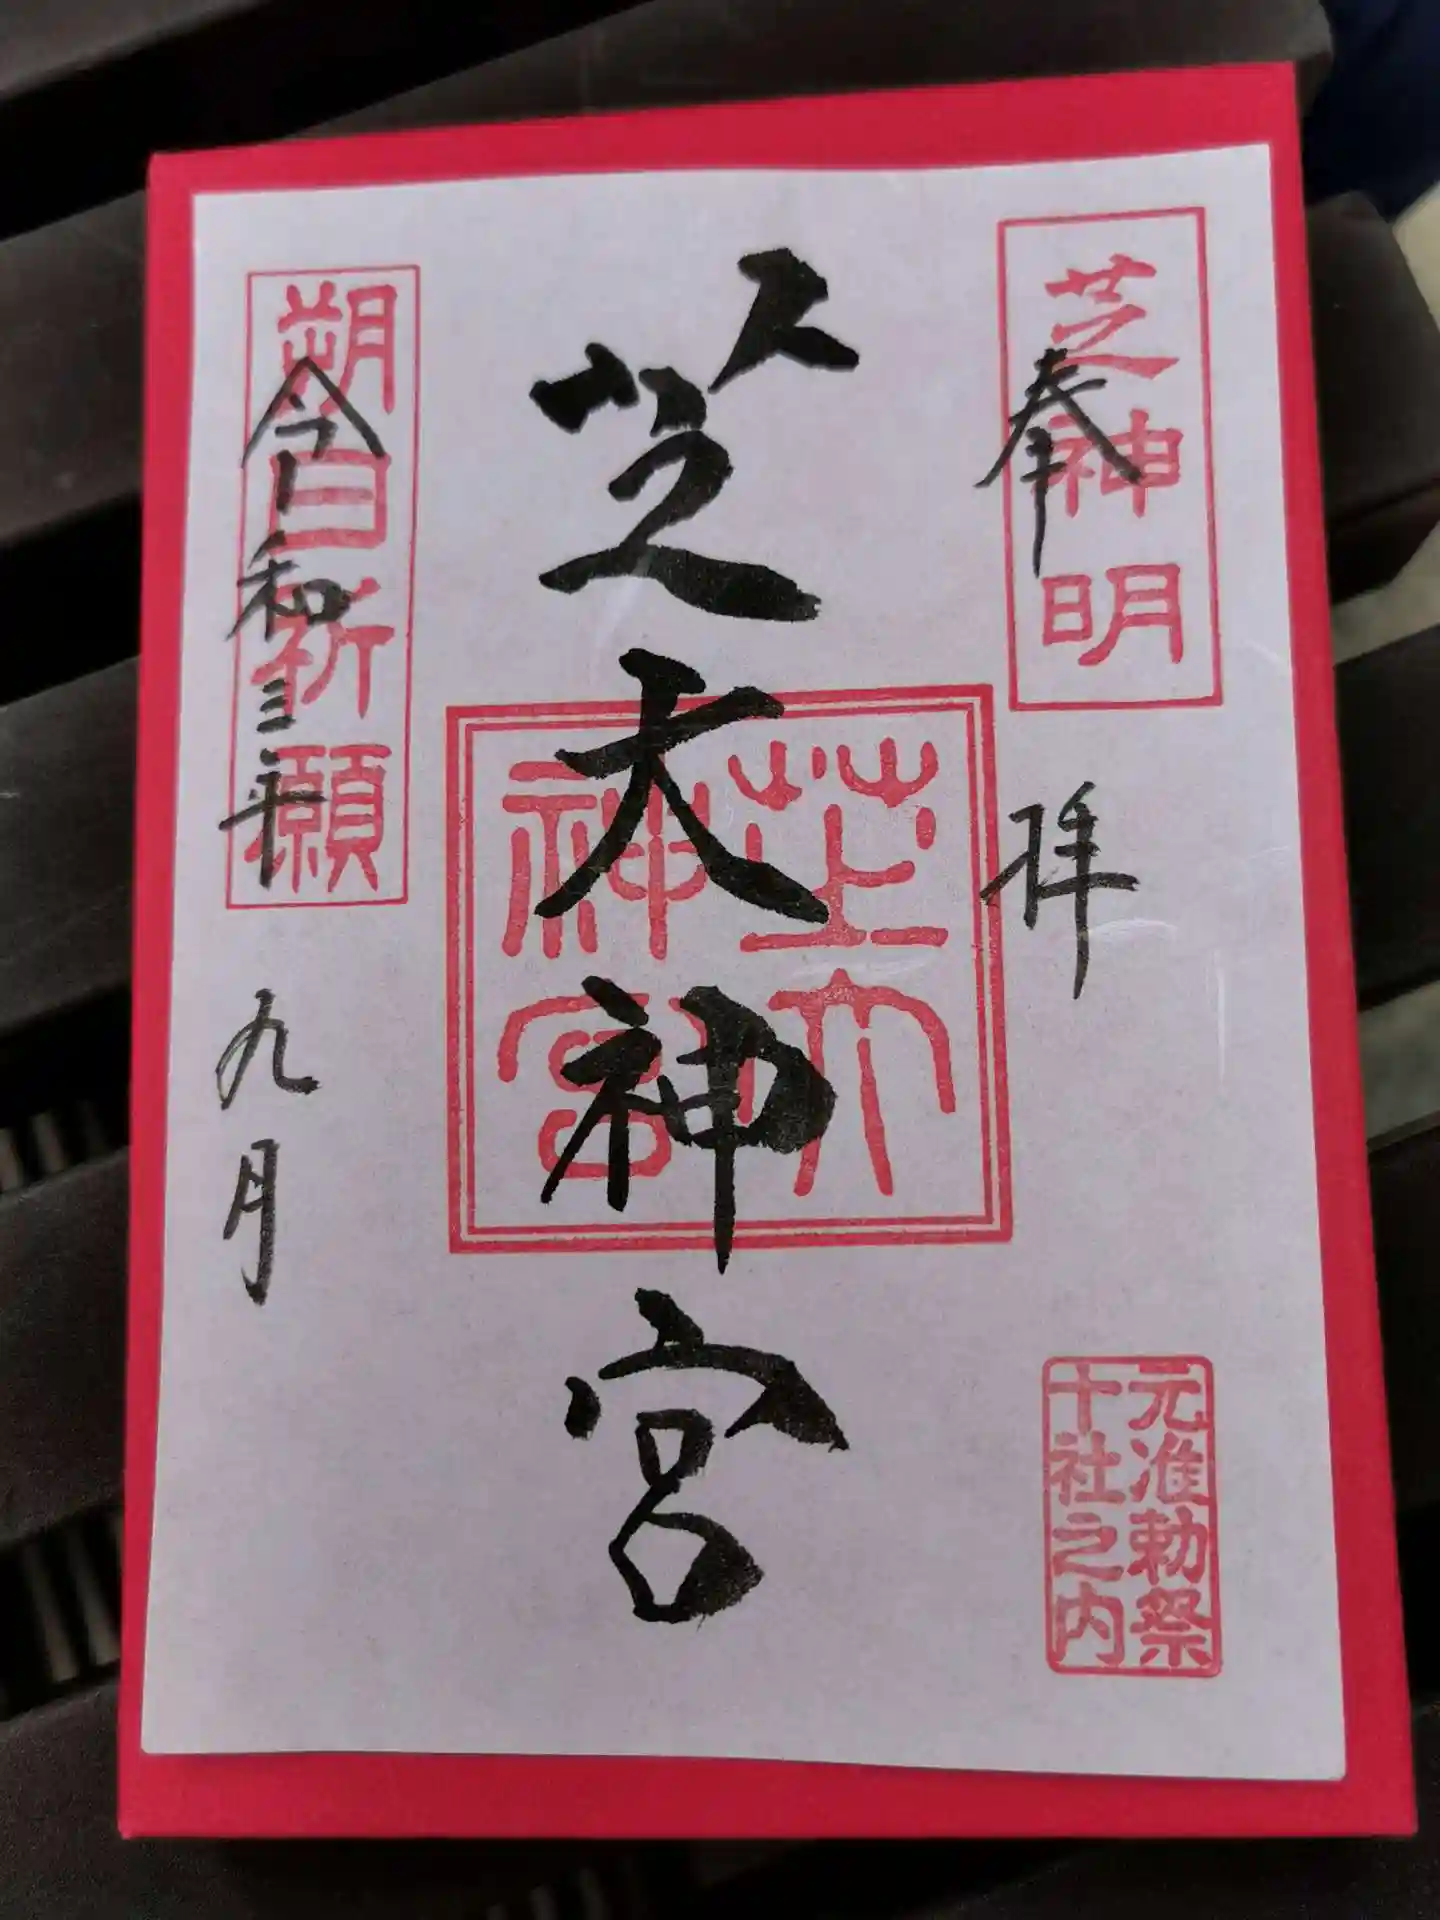 奉拝
芝神明
元准勅祭
十社之内
芝大神宮
芝大
神宮
朔日祈願
令和三年九月